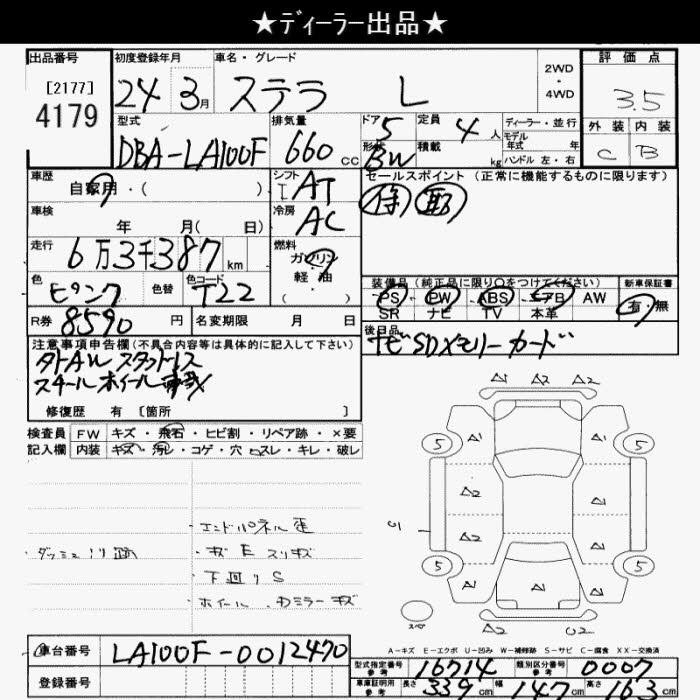 ★ディーラー出品★
出品番号 初度登録年月 車名・グレード 2WD・4WD 評価点
[2177] 4179 24 3月 ステラ L 3.5
型式 排気量 ドア 5 定員 4人 ディーラー・並行 外装 内装
DBA-LA100F 660cc 形状 BW 積載 kg モデル年式 年 ハンドル 左・右 C B
車歴 自家用・( ) シフト I AT セールスポイント (正常に機能するものに限ります)
車検 年 月( 日) 冷房 AC
走行 6万3千387km 燃料 ガソリン・軽油 ( )
色 ピンク 色替 色コード T22 装備品 (純正品に限り○をつけてください) 新車保証書
PS PW ABS エアB AW 有・無
SR ナビ TV 本革
R券 8590円 名変期限 月 日 後日品
ナビSDメモリーカード
注意事項申告欄(不具合内容等は具体的に記入して下さい)
タイヤAW スタッドレス
スチールホイール
修復歴 有 [箇所 ]
検査員 FW キズ・飛石・ヒビ割・リペア跡・×要
記入欄 内装 キズ・汚レ・コゲ・穴・スレ・キレ・破レ
A1 A2 A2
5 A1 A1 5
A2 A1
A2 A2
5 A1 A1 A1 5
A2 U2
・エンドパネル歪
・ダッシュ
・下回りS
・ホイール.
A-キズ E-エクボ U-凹み W-補修跡 S-サビ C-腐食 XX-交換済
車台番号 LA100F-0012470
登録番号
型式指定番号 参考 16714 類別区分番号 参考 0007
車庫証明用 参考 長さ 339cm 幅 147cm 高さ 163cm